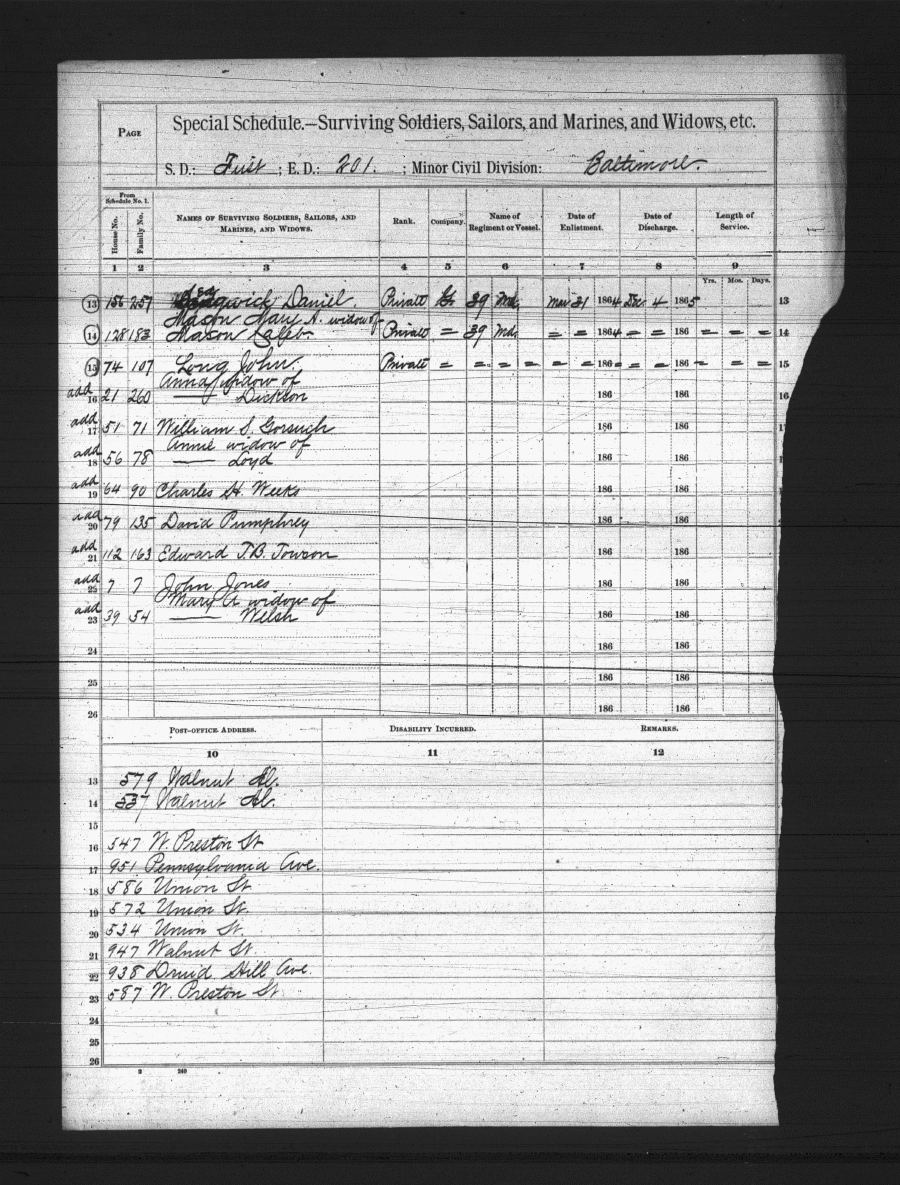 PAGE
Special Schedule.—Surviving Soldiers, Sailors, and Marines, and Widows, etc.
S. D.: First ; E. D.: 201. ; Minor Civil Division: Baltimore.
From Schedule No. 1.
House No. Family No. NAMES OF SURVIVING SOLDIERS, SAILORS, AND MARINES, AND WIDOWS. Rank. Company. Name of Regiment or Vessel. Date of Enlistment. Date of Discharge. Length of Service.
1 2 3 4 5 6 7 8 9
Yrs. Mos. Days.
13 156 257 Daniel Private G. 39 Md. Mar 31 1864 Dec 4 1865 13
Mason Mary A. widow of
14 128 183 Mason Caleb Private = 39 Md. = = 1864 = = 186 = = = 14
15 74 107 Long John. Private = = = = = = 186 = = = 186 = = = 15
Anna widow of
add 16 21 260 —— Dickson 186 186 16
add 17 51 71 William S. Gorsuch 186 186
Annie widow of
add 18 56 78 —— Loyd 186 186
add 19 64 90 Charles H. Weeks 186 186
add 20 79 135 David Pumphrey 186 186
add 21 112 163 Edward T. B. Towson 186 186
add 7 7 John Jones 186 186
Mary A widow of
add 23 39 54 —— Welsh 186 186
24 186 186
25 186 186
26 186 186
POST-OFFICE ADDRESS. DISABILITY INCURRED. REMARKS.
10 11 12
13 579 Walnut Al.
14 537 Walnut Al.
15
16 547 W. Preston St
17 951 Pennsylvania Ave.
18 586 Union St
19 572 Union St.
20 534 Union St.
21 947 Walnut St.
22 938 Druid Hill Ave.
23 587 W. Preston St
24
25
26